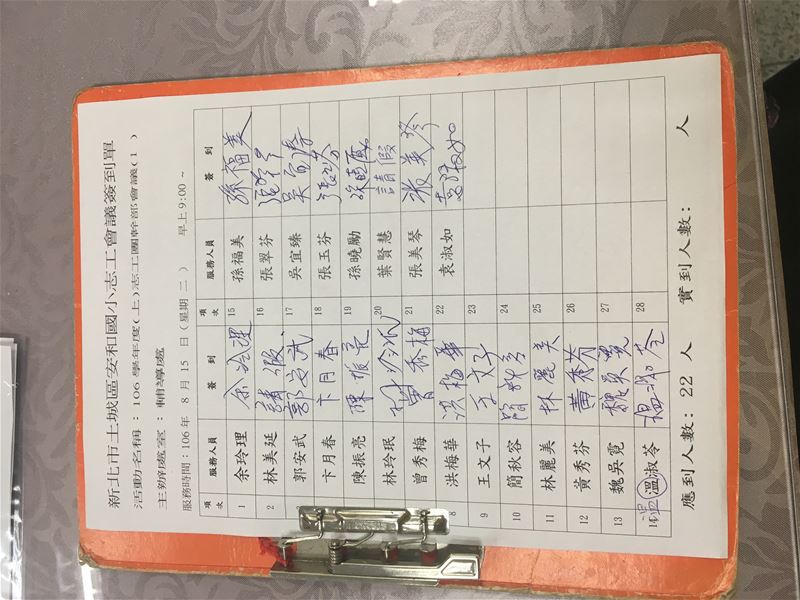 新北市土城區安和國小志工會議簽到單
活動名稱：106 學年度(上)志工團幹部會議(1)
主辦處室：輔導處
服務時間：106年 8 月 15 日（星期 二 ） 早上9:00 ~
項次 服務人員 簽 到 項次 服務人員 簽 到
1 余玲理 余玲理 15 孫福美 孫福美
2 林美延 請假 16 張翠芬
3 郭安武 郭安武 17 吳宜臻 吳宜臻
卞月春 卞月春 18 張玉芬 張玉芬
陳振亮 陳振亮 19 孫曉勵
林玲珉 林玲珉 20 葉賢慧 請假
曾秀梅 曾秀梅 21 張美琴 張美琴
8 洪梅華 洪梅華 22 袁淑如 袁淑如
9 王文子 王文子 23
10 簡秋容 簡秋容 24
11 林麗美 林麗美 25
12 黃秀芬 黃秀芬 26
13 魏吳霓 魏吳霓 27
14 溫 溫淑苓 溫淑苓 28
應到人數: 22 人 實到人數: 人